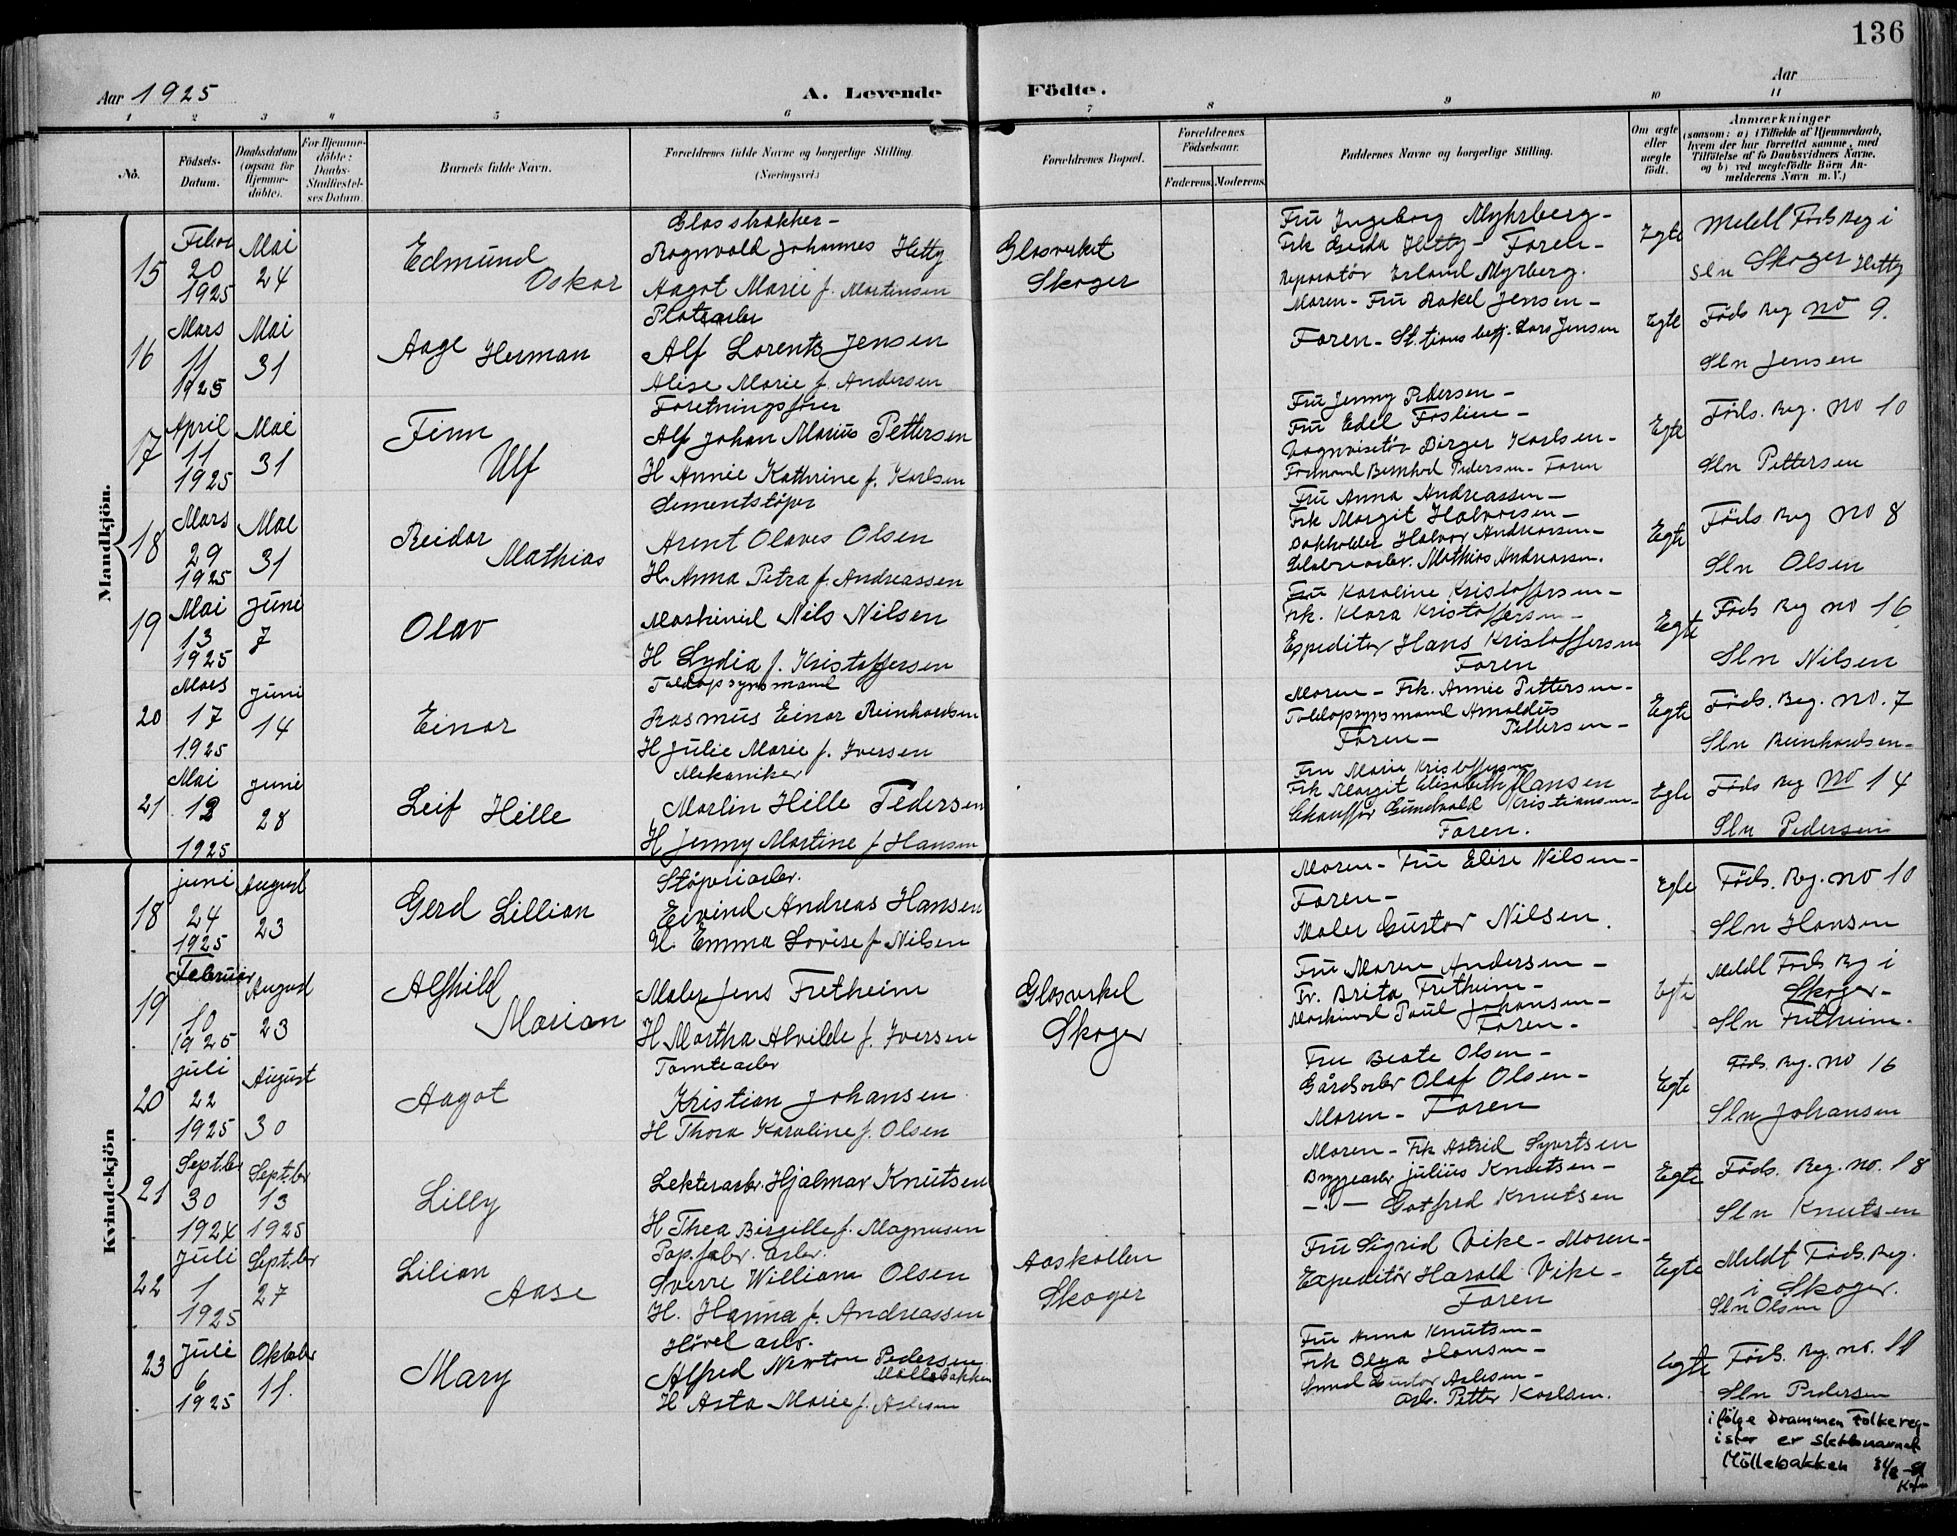 136
Aar 1925
A. Levende Födte.
Aar
1 2 3 4 5 6 7 8 9 10 11
No.
Födsels-Datum.
Daabsdatum (ogsaa for Hjemme-döbte).
For Hjemme-döbte: Daabs-Stadfæstel-ses Datum.
Barnets fulde Navn.
Forældrenes fulde Navne og borgerlige Stilling. (Næringsvei.)
Forældrenes Bopæl.
Forældrenes Födselsaar.
Faderens. Moderens.
Faddernes Navne og borgerlige Stilling.
Om ægte eller uægte födt.
Anmærkninger
(saasom: a) i Tilfælde af Hjemmedaab,
hvem der har forrettet samme, med
Tilföielse af to Daabsvidners Navne,
og b) ved uægtefödte Börn An-
melderens Navn m. V.)
Mandkjön.
15
Febr 20 1925
Mai 24
Edmund Oskar
Ragnvald Johannes Hitty
Aagot Marie f. Martinsen
Glasverket
Skoger
Fru Ingeborg Myhrberg-
Frk Gerda Hitty- Faren-
Reparatør Erland Myrberg.
Egte
Meldt Føds Reg i
Skoger
Sln Hitty
16
Mars 11 1925
Mai 31
Aage Herman
Platearbr
Alf Lorentz Jensen
Alise Marie f. Andersen
Moren- Fru Rakel Jensen-
Faren- Stations betj. Lars Jensen
Egte
Føds Reg no 9.
Sln Jensen
17
April 11 1925
Mai 31
Finn Ulf
Foretningsfører
Alf Johan Marius Pettersen
H Annie Kathrine f. Karlsen
Fru Jenny Pedersen-
Fru Edel Foslien-
Vognvisitør Birger Karlsen-
Formand Bernhod Pedersen- Faren
Egte
Føds. Reg. no 10
Sln Pettersen
18
Mars 29 1925
Mai 31
Reidar Mathias
Sementstøper
Arent Olaves Olsen
H. Anna Petra f. Andreassen
Fru Anna Andreassen-
Frk Margit Halvorsen-
Bokholder Halvor Andreassen-
Mathias Andreassen.
Egte
Føds. Reg no 8
Sln Olsen
19
Mai 13 1925
Juni 7
Olav
Maskinist Nils Nilsen
H Lydia f. Kristoffersen
Fru Karoline Kristoffersen-
Frk. Klara Kristoffersen-
Expeditør Hans Kristoffersen
Faren
Egte
Føds Reg no 16
Sln Nilsen
20
Mars 17 1925
Juni 14
Einar
Toldopsynsmand
Rasmus Einar Reinhardsen
H Julie Marie f. Iversen
Moren- Frk. Annie Pettersen-
Toldopsynsmand Arnoldus Pettersen-
Faren-
Egte
Føds. Reg. no. 7
Sln Reinhardsen-
21
Mai 12 1925
Juni 28
Leif Hille
Mekaniker
Martin Hille Pedersen
H Jenny Martine f Hansen
Fru Marie Kristoffersen
Frk Margit Elisabeth Hansen
Chauffør Gundvald Kristiansen-
Faren.
Egte
Føds Reg no 14
Sln Pedersen
Kvindekjön
18
Juni 24 1925
August 23
Gerd Lillian
Støperiarbr.
Eivind Andreas Hansen
H. Emma Lovise f Nilsen
Moren- Fru Elise Nilsen-
Faren-
Maler Gustav Nilsen.
Egte
Føds. Reg. no 10
Sln Hansen
19
Februar 10 1925
August 23
Alfhild Marian
Maler Jens Fretheim
H Martha Alvilde f. Iversen
Glasverket
Skoger
Fru Maren Andersen-
Fr. Brita Fretheim-
Maskinist Paul Johansen-
Faren-
Egte
Meldt Føds Reg i
Skoger-
Sln Fretheim.
20
Juli 22 1925
August 30
Aagot
Tomtearbr
Kristian Johansen
H Thora Karoline f. Olsen
Fru Beate Olsen-
Gårdsarbr Olaf Olsen-
Moren- Faren
Egte
Føds. Reg. no 16
Sln Johansen
21
Septbr 30 1924
Septbr 13 1925
Lilly
Lekterarbr. Hjalmar Knutsen
H Thea Birgitte f. Magnusen
Moren- Frk Astrid Syvertsen
Bryggearbr Julius Knutsen-
-"- Gotfred Knutsen
Egte
Føds. Reg. no. 18
Sln Knutsen
22
Juli 1 1925
Septbr 27
Lilian Aase
Pap.fabr. arbr.
Sverre William Olsen
H. Hanna f. Andreassen
Aaskollen
Skoger
Fru Sigrid Vike- Moren-
Expeditør Harald Vike-
Faren
Egte
Meldt Føds. Reg.
i Skoger.
Sln Olsen
23
Juli 6 1925
Oktober 11.
Mary
Høvel arbr.
Alfred Newton Pedersen
Møllebakken
H Asta Marie f. Aslesen
Fru Anna Knutsen-
Frk Olga Hansen-
Arb. Petter Karlsen.
Egte
Føds. Reg. no. 11
Sln Pedersen
ifølge Drammen Folkereg-
ister er slektsnavnet
Møllebakken